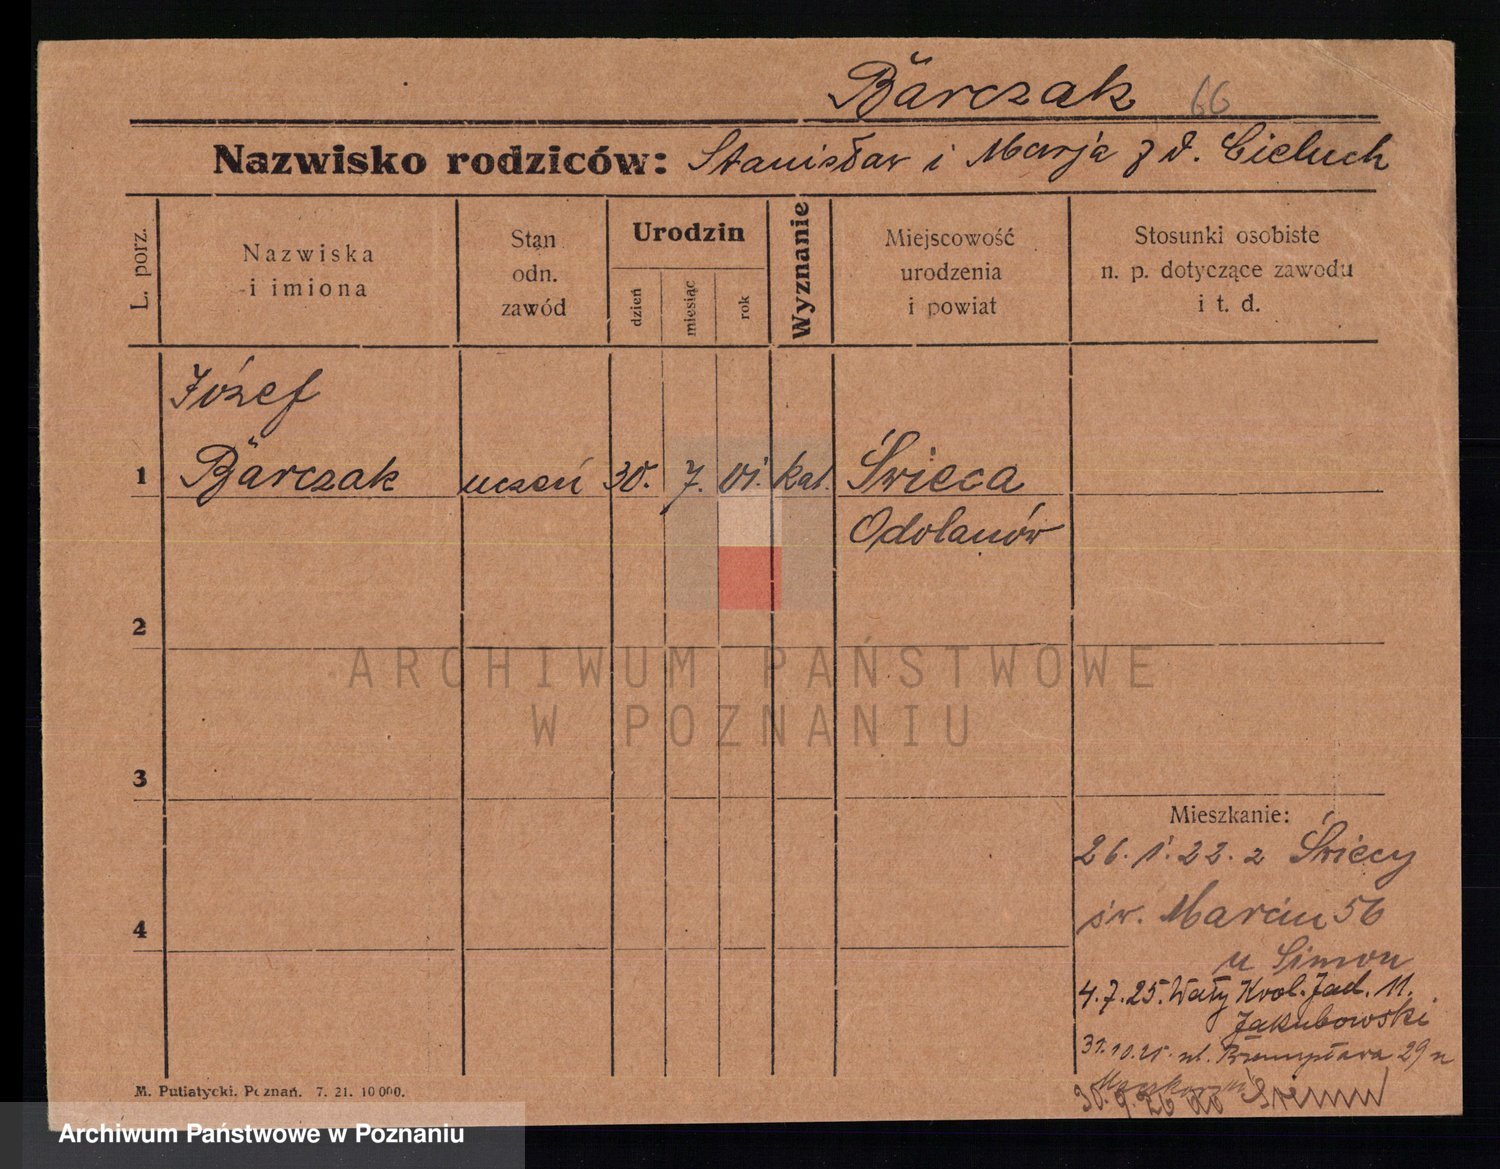 Bärczak 66
Nazwisko rodziców: Stanisław i Marja z d. Cieluch
L. porz.
Nazwiska
i imiona
Stan
odn.
zawód
Urodzin
dzień
miesiąc
rok
Wyznanie
Miejscowość
urodzenia
i powiat
Stosunki osobiste
n. p. dotyczące zawodu
i t. d.
Józef
1 Bärczak uczeń 30. 7. 01. kat. Świeca
Odolanów
2
3
4
Mieszkanie:
26. 1. 22. z Świecy
św. Marcin 56
u Simon
4.7.25. Wały Król. Jad. 11.
Jakubowski
31.10.25. ul. Przemysława 29 u
30. 9. 26 do
M. Putiatycki, Poznań. 7. 21. 10 000.
ARCHIWUM PAŃSTWOWE
W POZNANIU
Archiwum Państwowe w Poznaniu